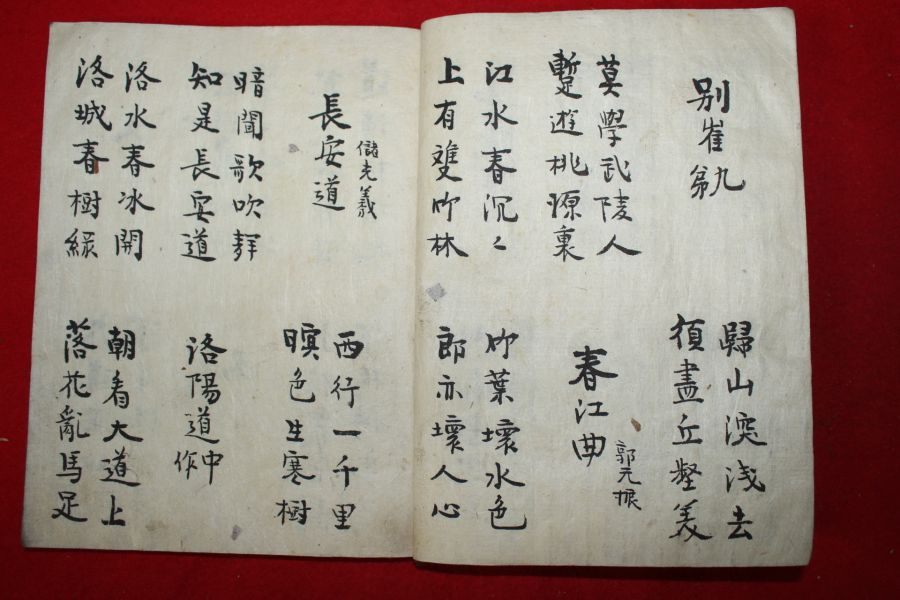 別崔九
歸山深浅去
須盡丘壑美
莫學武陵人
暫遊桃源裏
春江曲
郭元振
江水春沉〻
上有雙竹林
竹葉壞水色
郎亦壞人心
長安道
儲光羲
西行一千里
暝色生寒樹
暗聞歌吹聲
知是長安道
洛陽道中作
洛水春冰開
洛城春樹綠
朝看大道上
落花亂馬足